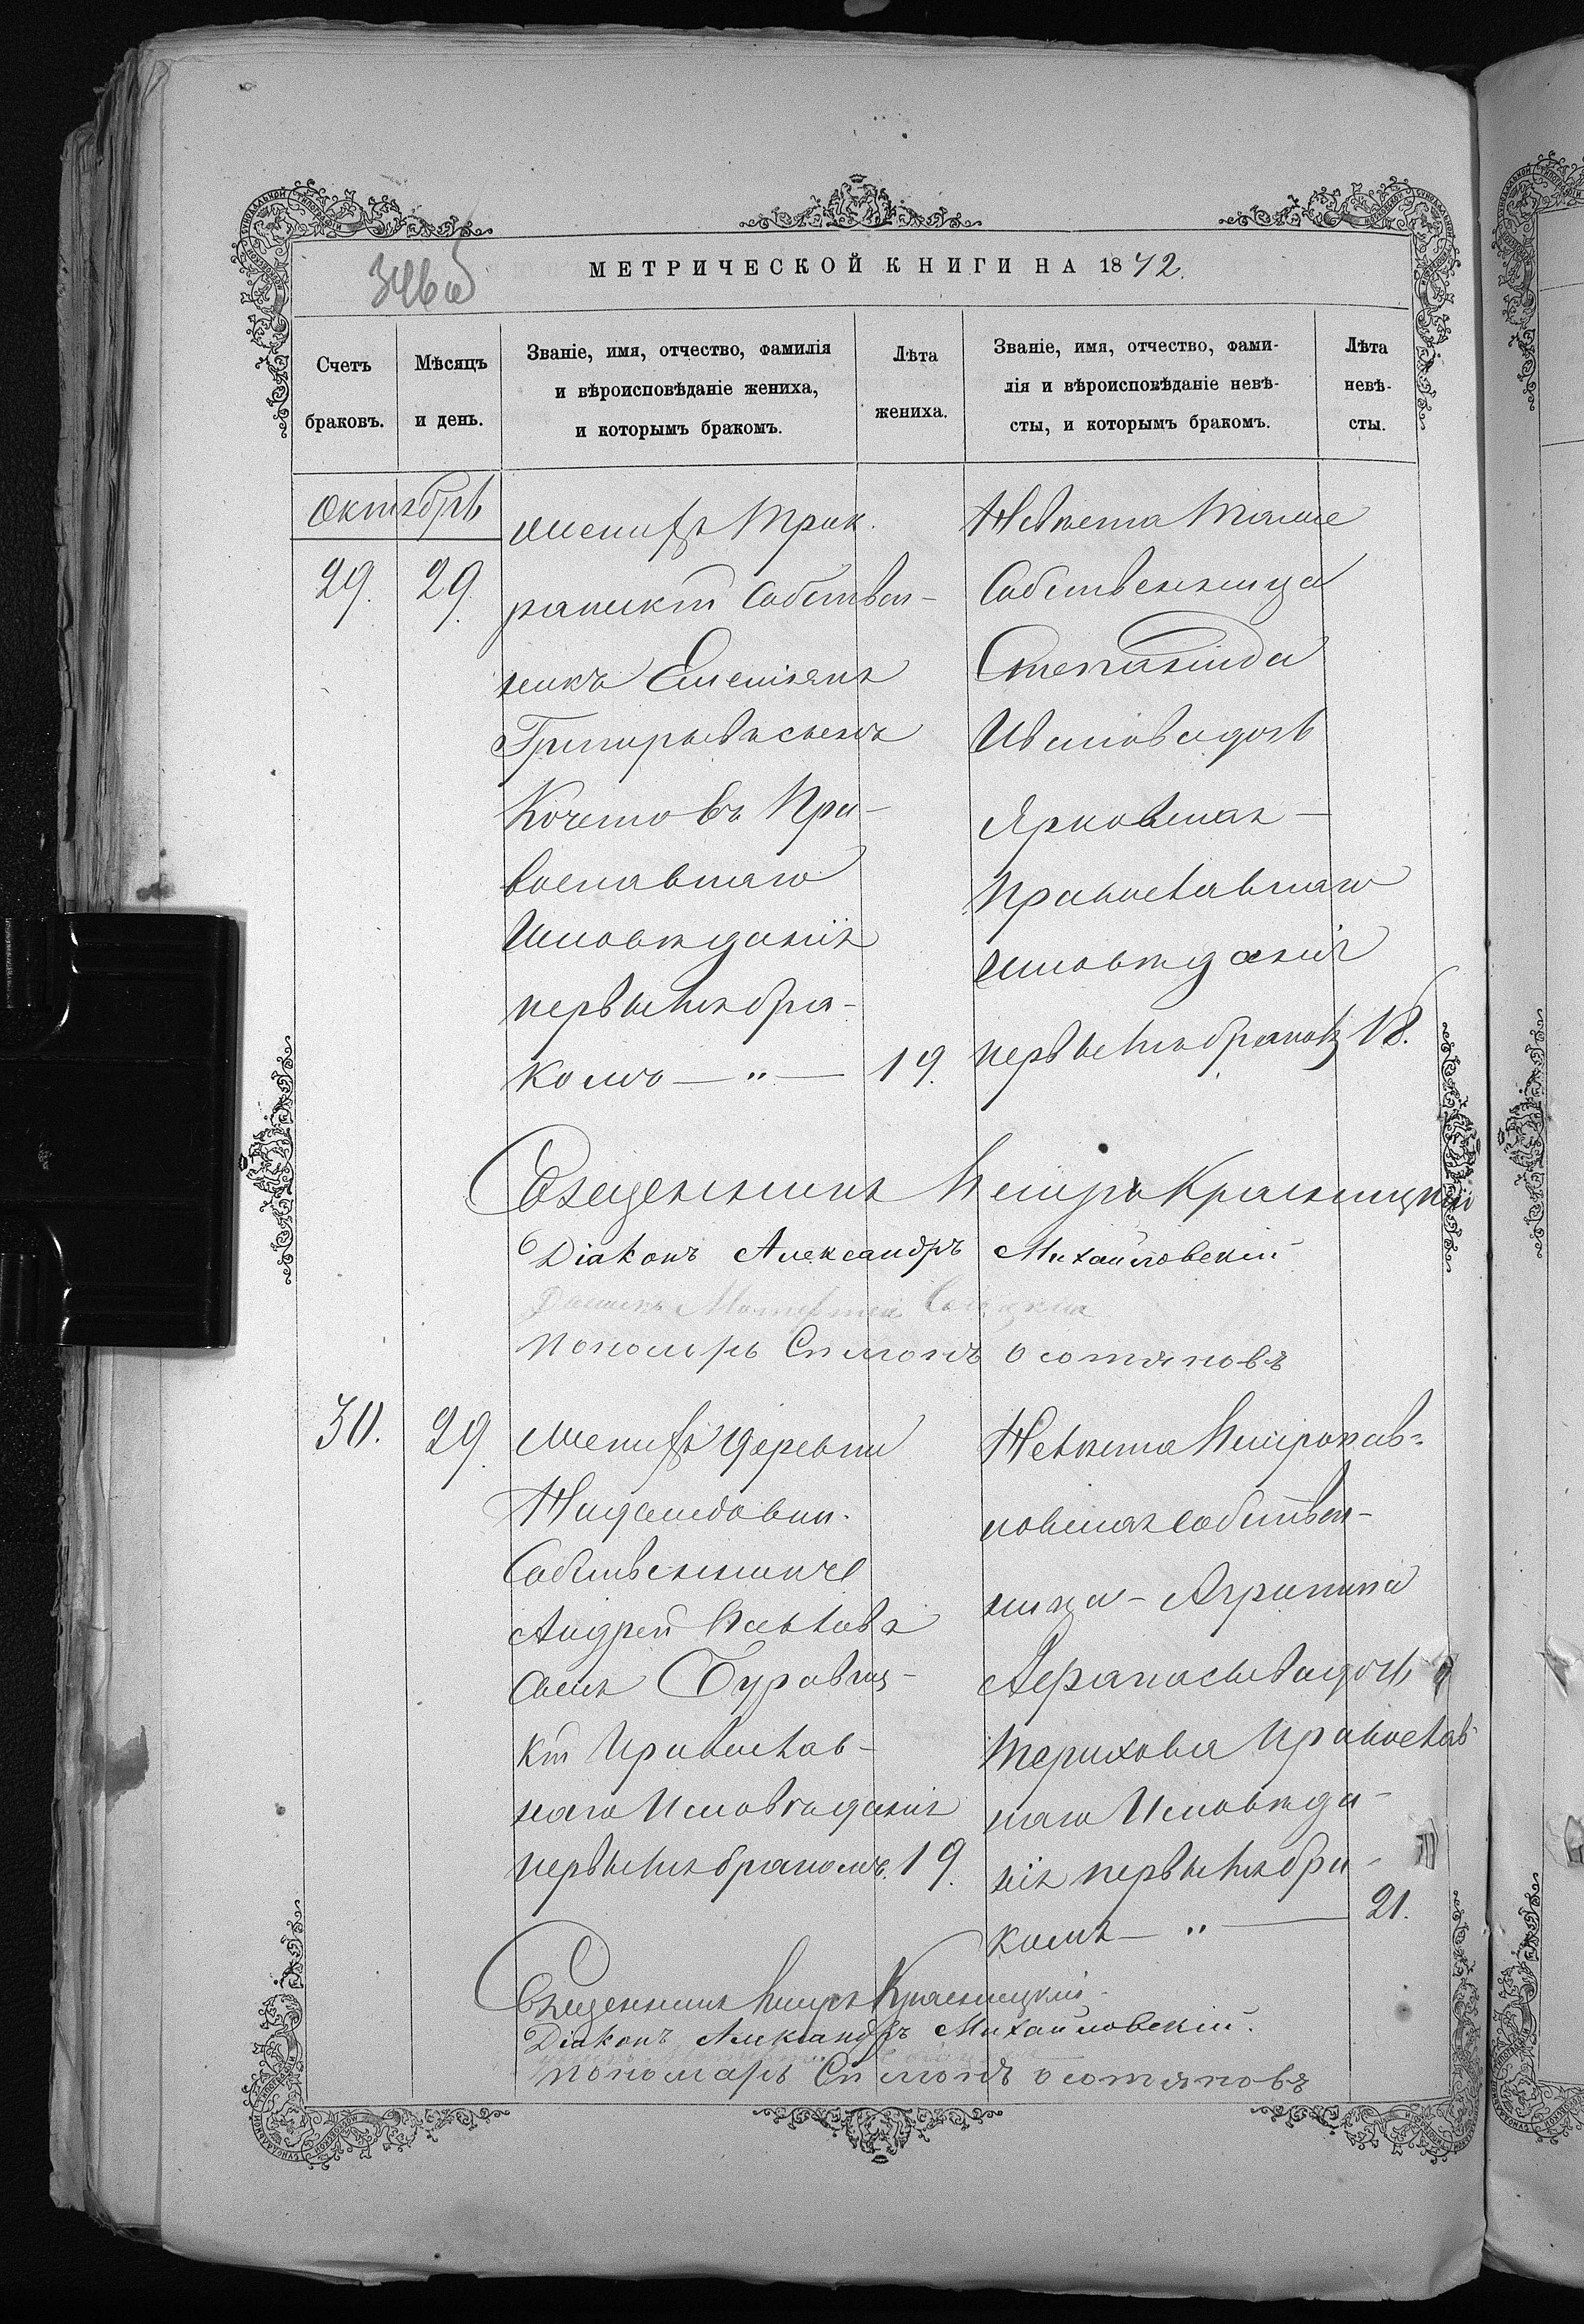 МЕТРИЧЕСКОЙ КНИГИ НА 1872.
Счетъ браковъ.
Мѣсяцъ и день.
Званіе, имя, отчество, фамилія
и вѣроисповѣданіе жениха,
и которымъ бракомъ.
Лѣта
жениха.
Званіе, имя, отчество, фами-
лія и вѣроисповѣданіе невѣ-
сты, и которымъ бракомъ.
Лѣта
невѣ-
сты.
Октябрь
29. 29.
Женихъ
Собствен-
никъ Емеліянъ
Григорьевъ сынъ
Кочетовъ Пра-
вославнаго
Исповѣданія
первымъ бра-
комъ — " — 19.
Невѣста тоже
Собственница
Степанида
Иванова дочь
Православнаго
исповѣданія
первымъ бракомъ 18.
Священникъ Петръ Красницкій
Діаконъ Александръ Михайловскій
Пономарь Симонъ
30. 29.
Женихъ деревни
Собственникъ
Андрей Павловъ
сынъ
Православ-
наго Исповѣданія
первымъ бракомъ. 19.
Невѣста
собствен-
ница - Агрипина
Афанасьева дочь
Терихова Православ-
наго Исповѣда-
нія первымъ бра-
комъ — " — 21.
Священникъ Петръ Красницкій
Діаконъ Александръ Михайловскій.
Пономарь Симонъ